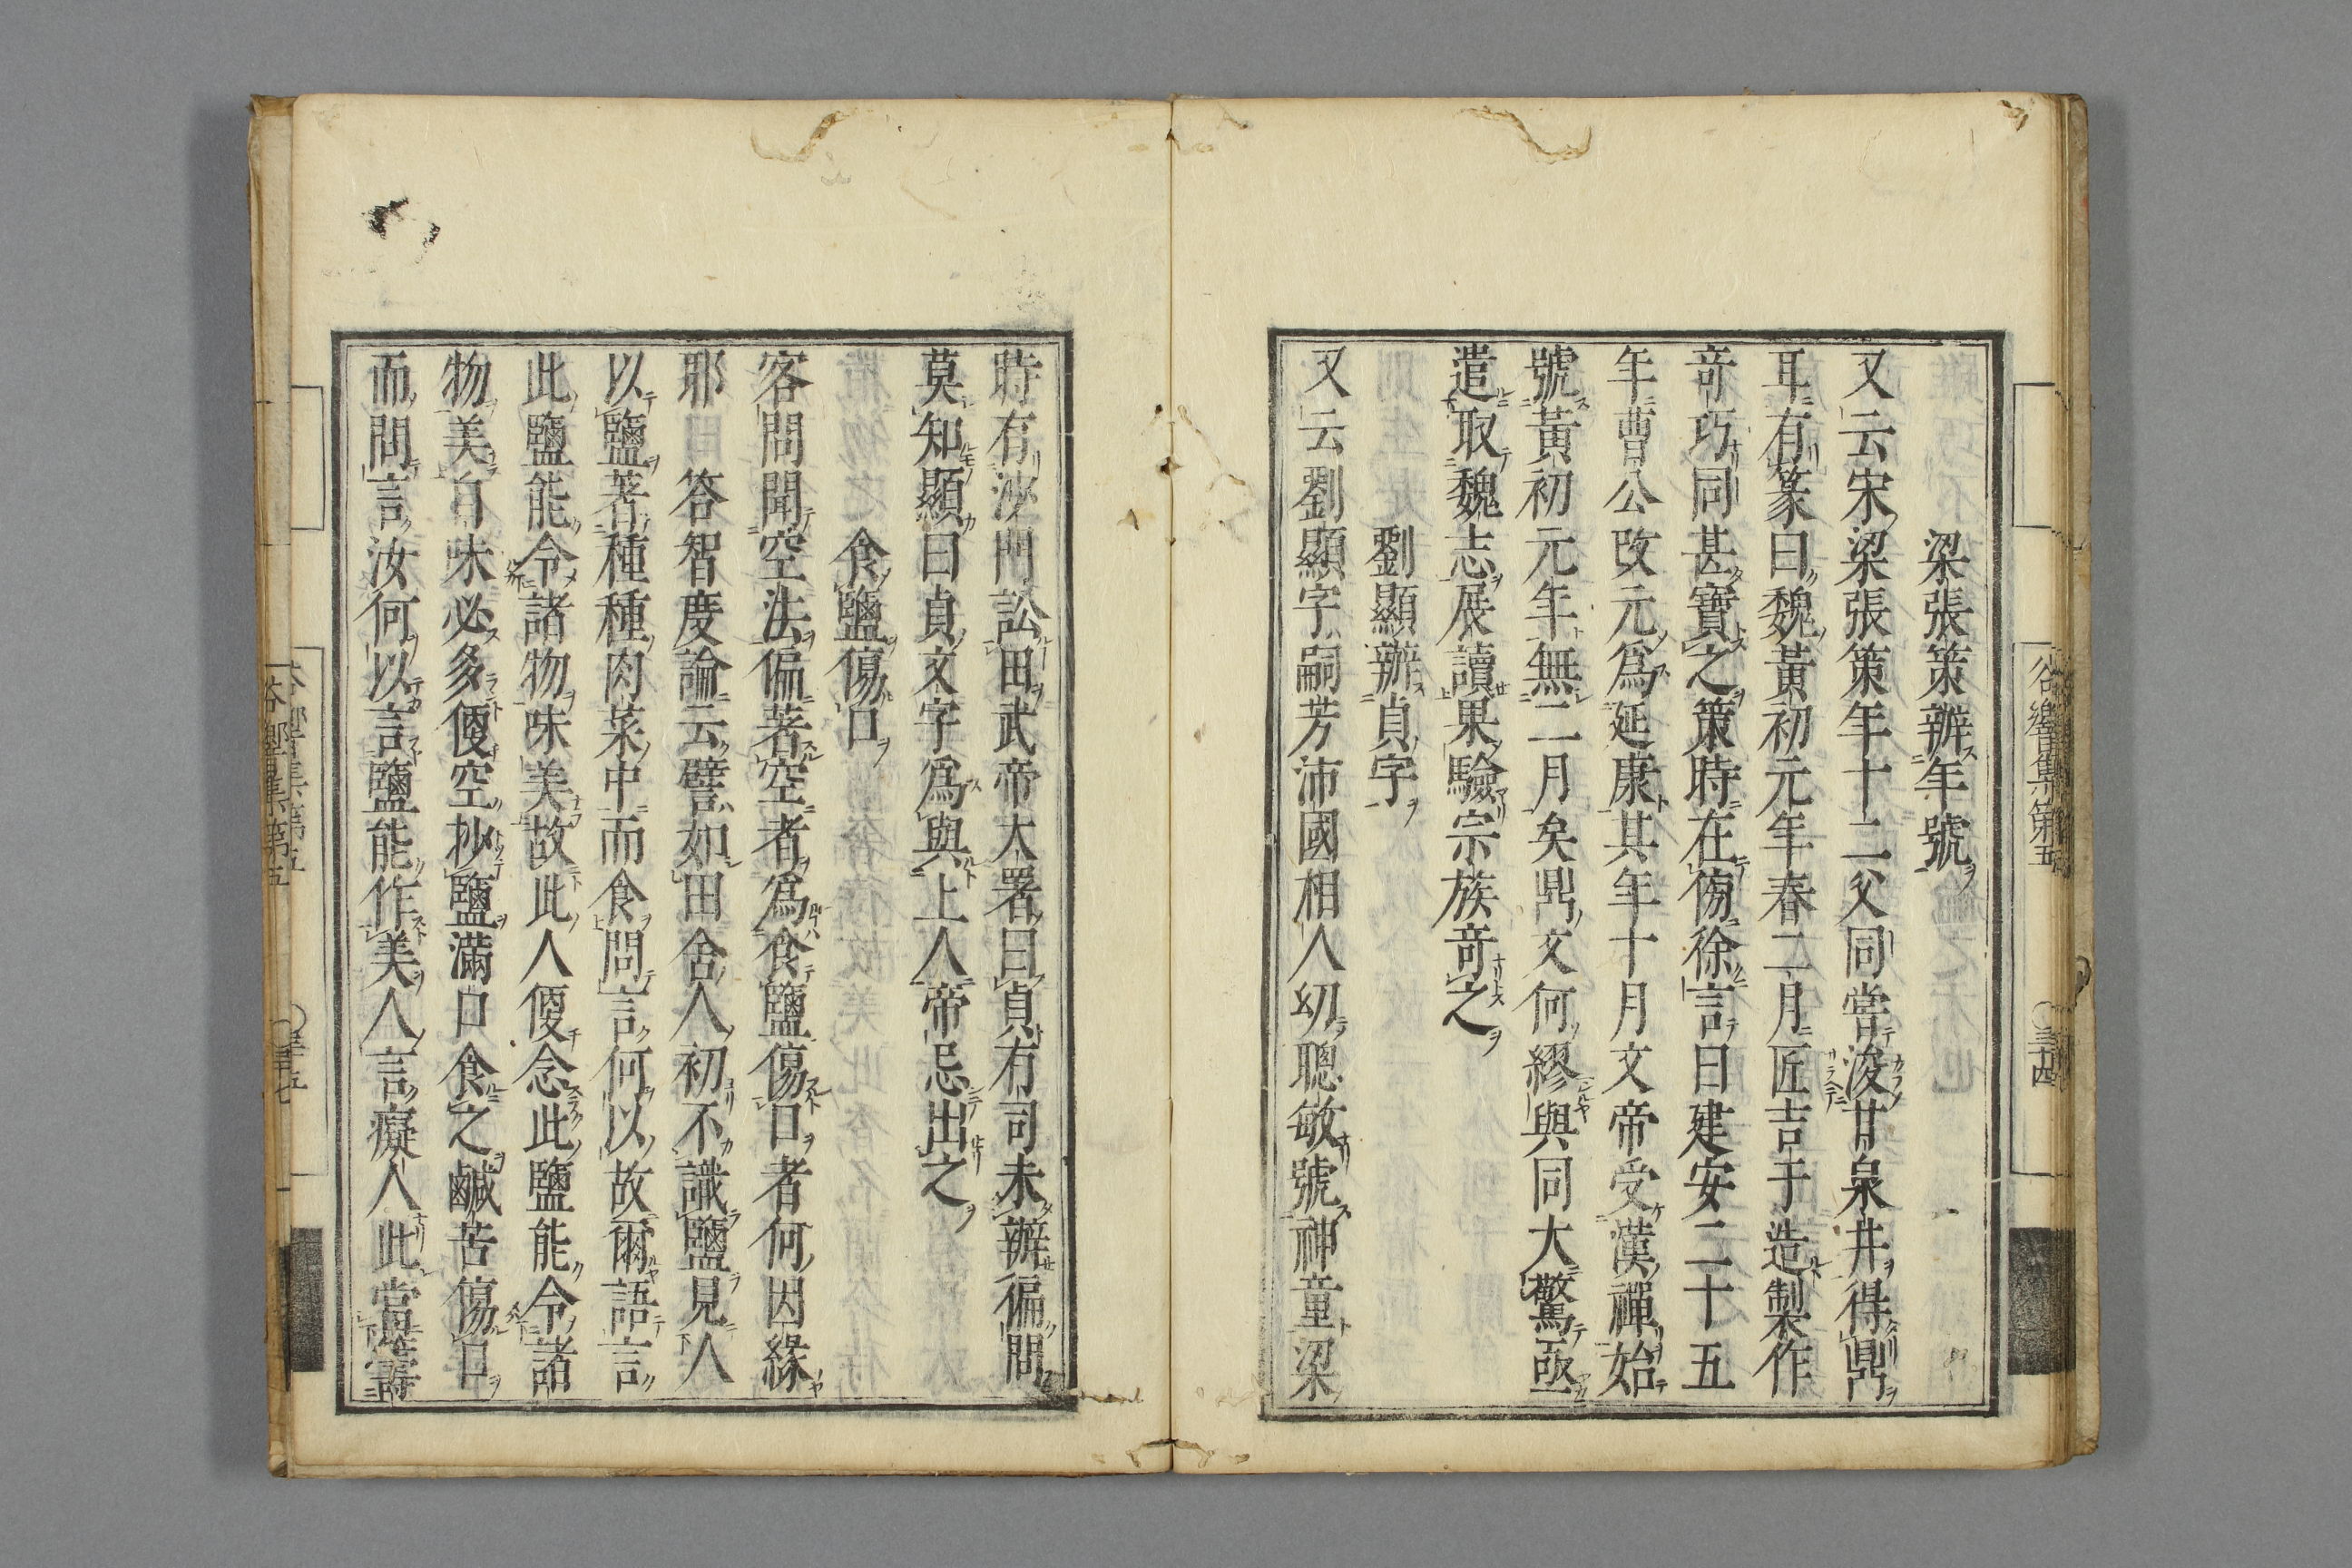 梁張策辦年號
又云宋梁張策年十二父同嘗浚甘泉井得鼎
耳有篆曰魏黃初元年春二月匠吉于造製作
竒巧同甚寶之策時在傍徐言曰建安二十五
年曹公改元爲延康其年十月文帝受漢禪始
號黃初元年無二月矣鼎文何繆與同大驚亟
遣取魏志展讀果驗宗族竒之
劉顯辦貞字
又云劉顯字嗣芳沛國相人幼聰敏號神童梁
時有沙門訟田武帝大署曰貞有司未辦徧問
莫知顯曰貞文字爲與上人帝忌出之
食鹽傷口
客問聞空法偏著空者爲食鹽傷口者何因緣
耶 答智度論云譬如田舍人初不識鹽見人
以鹽著種種肉菜中而食問言何以故爾語言
此鹽能令諸物味美故此人便念此鹽能令諸
物美自味必多便空抄鹽滿口食之鹹苦傷口
而問言汝何以言鹽能作美人言癡人此當籌
谷響集第五
三十四